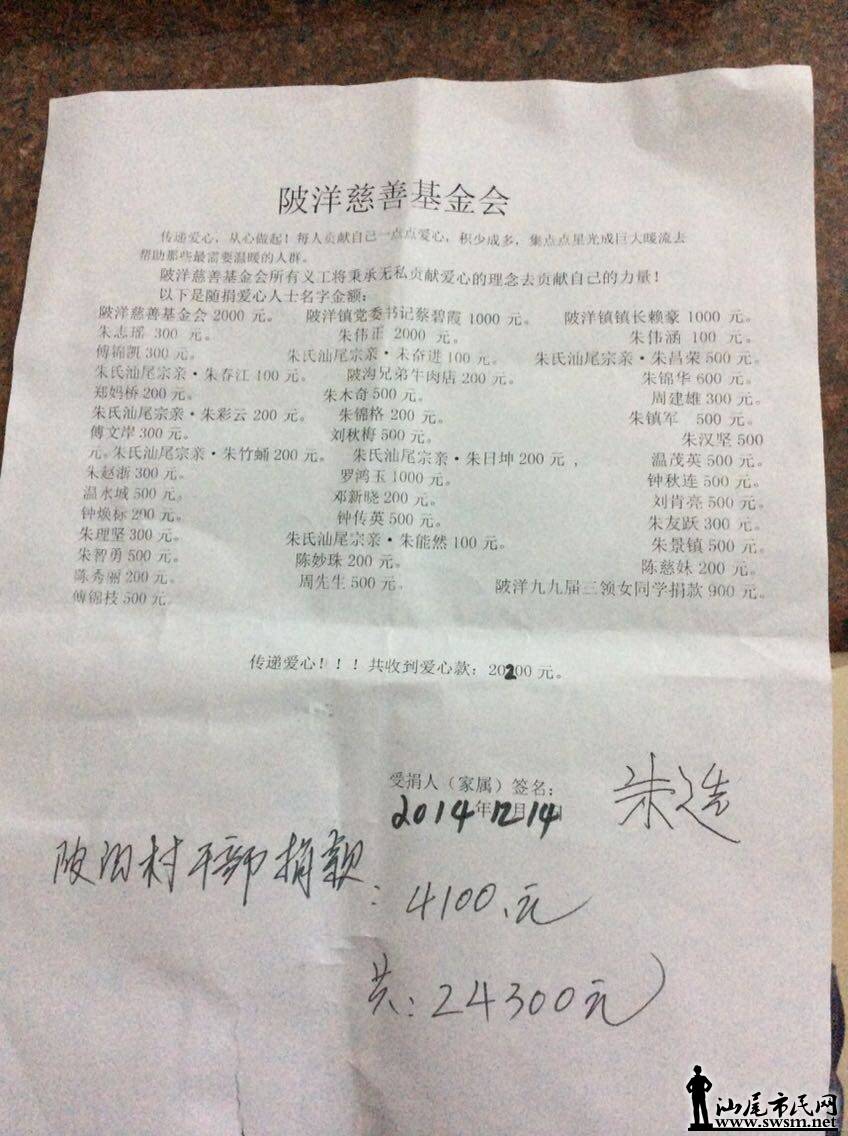 陂洋慈善基金会
传递爱心，从心做起！每人贡献自己一点点爱心，积少成多，集点点星光成巨大暖流去
帮助那些最需要温暖的人群。
陂洋慈善基金会所有义工将秉承无私贡献爱心的理念去贡献自己的力量！
以下是随捐爱心人士名字金额：
陂洋慈善基金会 2000 元。 陂洋镇党委书记蔡碧霞 1000 元。 陂洋镇镇长赖豪 1000 元。
朱志瑶 300 元。 朱伟正 2000 元。 朱伟涵 100 元。
傅锦凯 300 元。 朱氏汕尾宗亲·朱奋进 100 元。 朱氏汕尾宗亲·朱昌荣 500 元。
朱氏汕尾宗亲·朱春江 100 元。 陂沟兄弟牛肉店 200 元。 朱锦华 600 元。
郑妈桥 200 元。 朱木奇 500 元。 周建雄 300 元。
朱氏汕尾宗亲·朱彩云 200 元。 朱锦格 200 元。 朱镇军 500 元。
傅文岸 300 元。 刘秋梅 500 元。 朱汉坚 500
元。朱氏汕尾宗亲·朱竹蛹 200 元。 朱氏汕尾宗亲·朱日坤 200 元， 温茂英 500 元。
朱赵浙 300 元。 罗鸿玉 1000 元。 钟秋连 500 元。
温水城 500 元。 邓新晓 200 元。 刘肯亮 500 元。
钟焕标 200 元。 钟传英 500 元。 朱友跃 300 元。
朱理坚 300 元。 朱氏汕尾宗亲·朱能然 100 元。 朱景镇 500 元。
朱智勇 500 元。 陈妙珠 200 元。 陈慈妹 200 元。
陈秀丽 200 元。 周先生 500 元。 陂洋九九届三领女同学捐款 900 元。
傅锦枝 500 元。
传递爱心！！！共收到爱心款：20200 元。
受捐人（家属）签名： 朱选
2014年12月14日
陂沟村干部捐款：4100.元
共：24300元
汕尾市民网
www.swsm.net